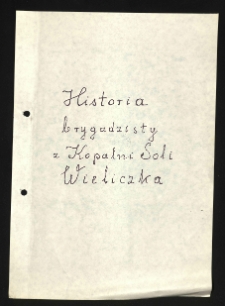 Historia
brygadzisty
z Kopalni Soli
Wieliczka